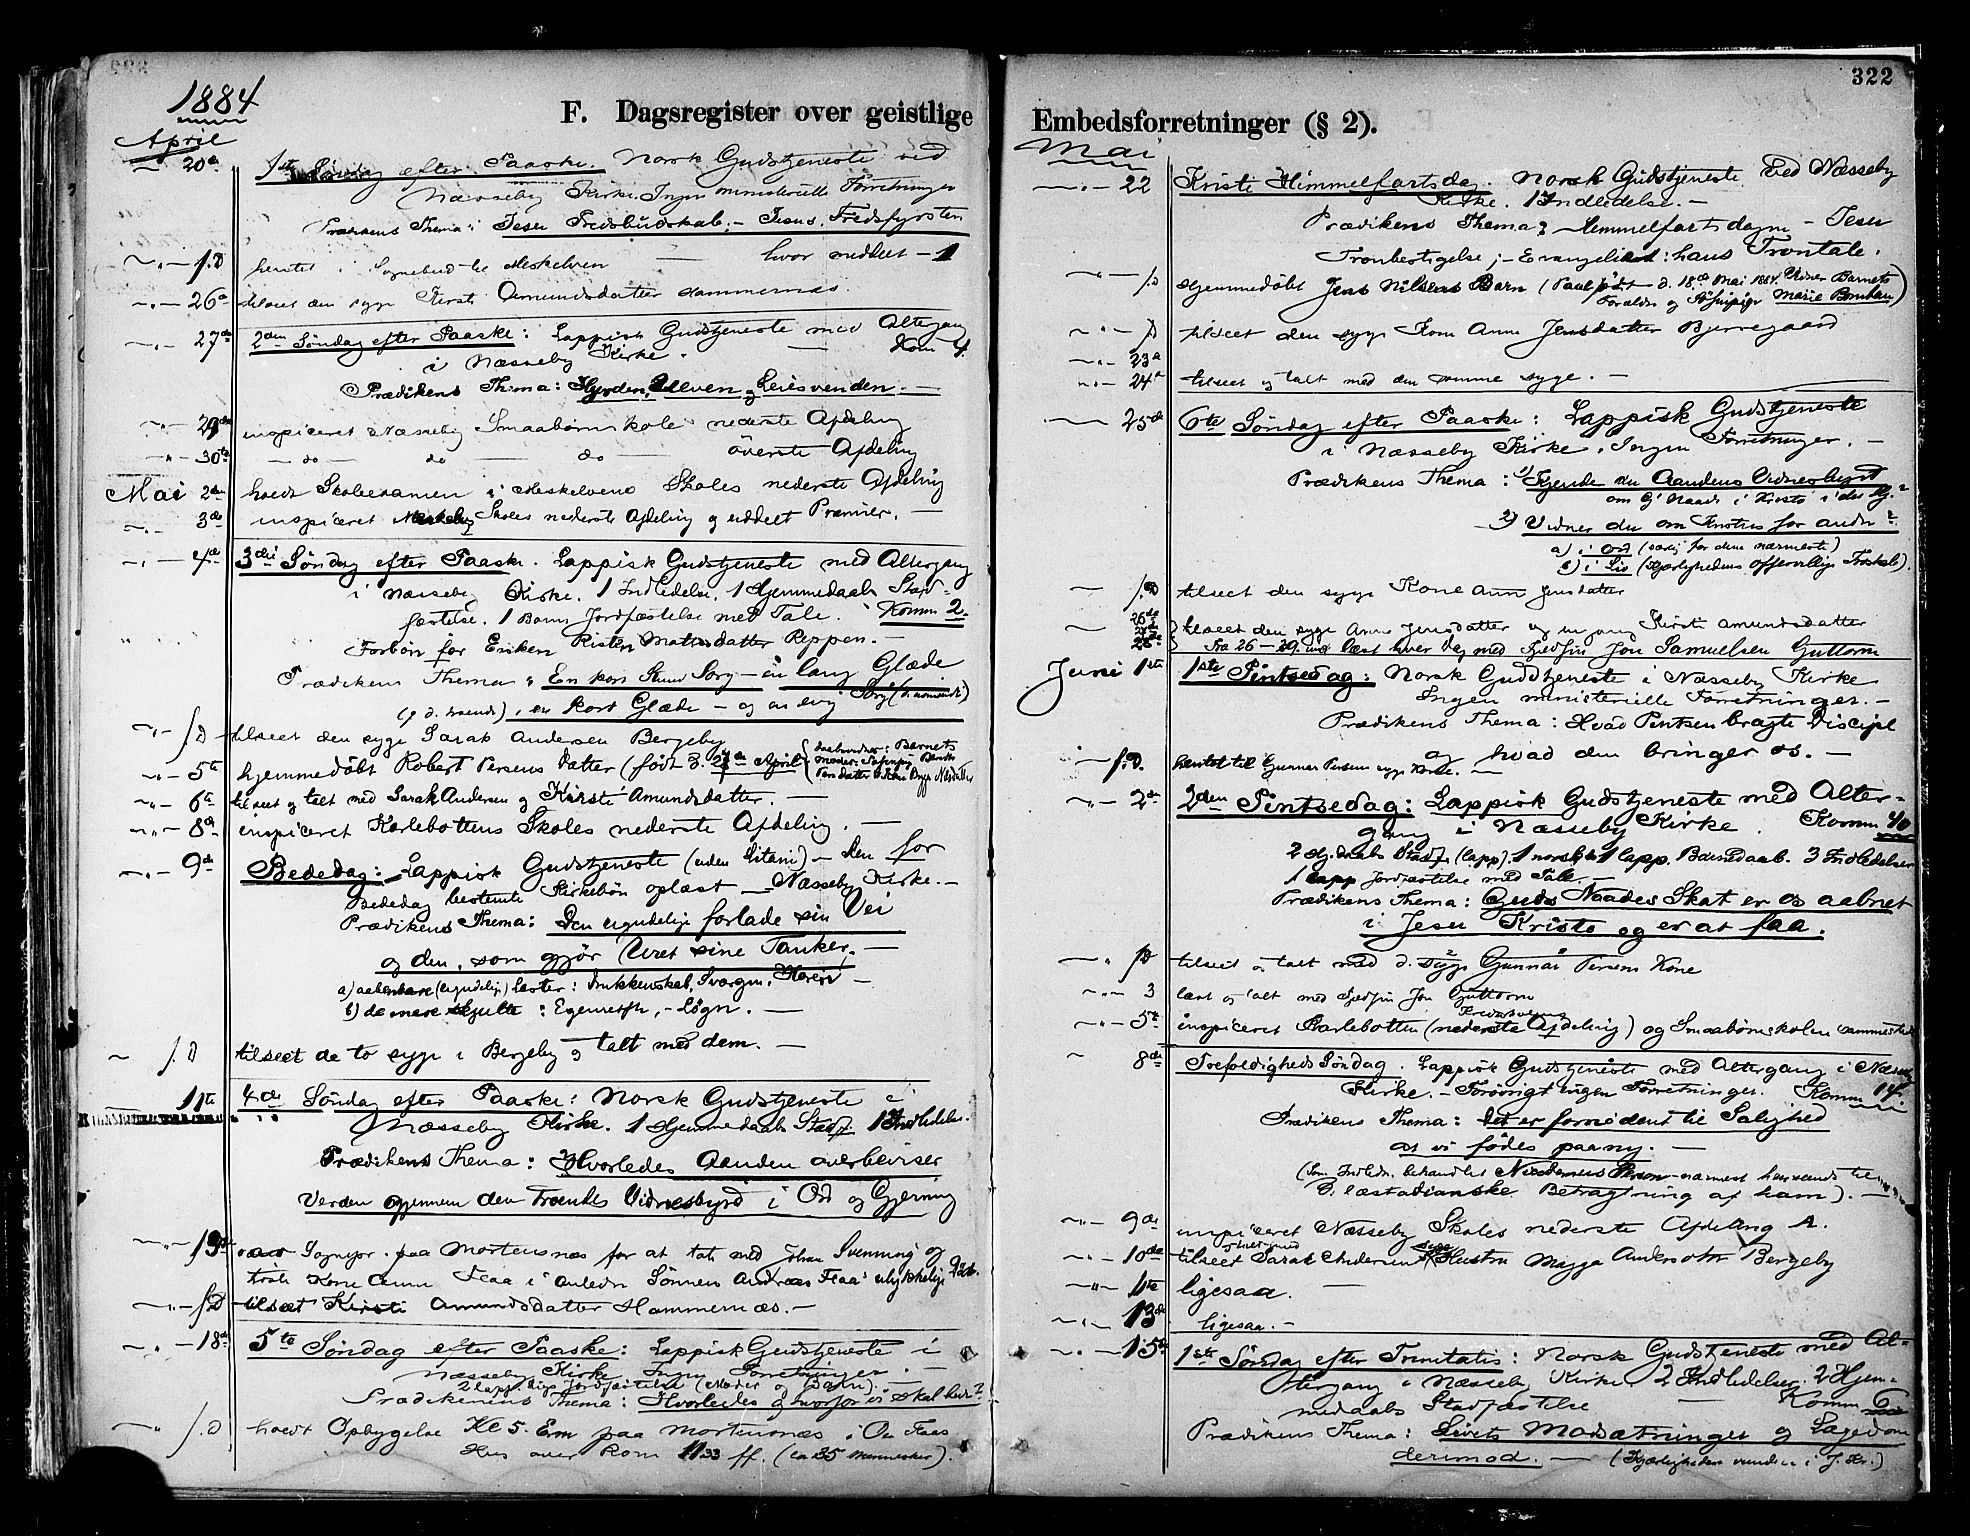 1884
F. Dagsregister over geistlige
April
20de 1ste Søndag efter Paaske. Norsk Gudstjeneste ved
Næsseby Kirke. Ingen ministerielle Forretninger
Prædikens Thema: Jesu Fredsbudskab; – Jesus, Fredsfyrsten
s.D hentet i Sognebud til Meskelven — hvor meddelt – 1
– " – 26de tilseet den syge Kirsti Amundsdatter Hammernæs.
– " – 27de 2den Søndag efter Paaske: Lappisk Gudstjeneste med Altergang
i Næsseby Kirke. — Kom 4.
Prædikens Thema: Hyrden, Ulven og Leiesvenden. —
– " – 29de inspiceret Næsseby Smaabørnskole nederste Afdeling
" – 30te – do — do — do — överste Afdeling
Mai 2den holdt Skoleexamen i Meskelvens Skoles nederste Afdeling
– " – 3de inspiceret Skoles nederste Afdeling og uddelt Præmier. —
– " – 4de 3die Søndag efter Paaske. Lappisk Gudstjeneste med Altergang
i Næsseby Kirke. 1 Indledelse. 1 Hjemmedaabs Stad-
fæstelse. 1 Barns Jordfæstelse med Tale. Komm 2.
Forbøn for Enken Risten Mattisdatter Reppen. —
Prædikens Thema: En kort Stund Sorg – en lang Glæde
en kort Glæde – og en evig Sorg
– " – s.D – tilseet den syge Sarak Andersen Bergeby
– " – 5te hjemmedöbt Robert Persens Datter (født d. April
– " – 6te tilseet og talt med Sarak Andersen og Kirsti Amundsdatter. —
– " – 8de inspiceret Karlebottens Skoles nederste Afdeling. —
– " – 9de Bededag: – Lappisk Gudstjeneste (uden Litani) – den for
Bededag bestemte Kirkebön oplæst — Næsseby Kirke. –
Prædikens Thema: Den ugudelige forlade sin Vei
og den, som gjør Uret sine Tanker, —
a) aabenbare (ugudelige) Laster: Drukkenskab, Sværgen, Horeri —
b) de mere skjulte: , – Løgn. —
– s.D tilseet de to syge i Bergeby og talt med dem. —
11te 4de Søndag efter Paaske: Norsk Gudstjeneste i
Næsseby Kirke. 1 Hjemmedaabs Stadf. 1 Indledelse.
Prædikens Thema: Hvorledes Aanden overbeviser
Verden gjennem den Troendes Vidnesbyrd i Ord og Gjerning
– " – 13de paa Mortensnæs for at tale med Johan Svenning og
Kone Ann Flaa i Anledn. Sønnen Andreas Flaa's ulykkelige Död.
– " – s.D – tilseet Kirsti Amundsdatter Hammernæs. —
– " – 18de 5te Søndag efter Paaske: Lappisk Gudstjeneste i
Næsseby Kirke Ingen Forretninger. —
2 lappiske Jordfæstelse (Moder og Barn).
Prædikenens Thema: Hvorledes og hvorfor vi skal bede?
– " s.D holdt Opbyggelse Kl 5. Em paa Mortensnæs i Ole Flaas
Hus over Rom 11.33 ff. (ca 35 Mennesker).
322
Embedsforretninger (§ 2).
Mai
– " – 22 Kristi Himmelfartsdag. Norsk Gudstjeneste ved Næsseby
Kirke. 1 Indledelse. –
Prædikens Thema: Himmelfartsdagen – Jesu
Tronbestigelse; – Evangeliet: hans Trontale.
– " – s.D Hjemmedöbt Jens Nilsens Barn ( født d. 18de Mai 1884. Vidner Barnets
Forældre og Marie
– " – s.D tilseet den syge Kone Anne Jensdatter Bjerregaard
– " – 23de
– " – 24de tilseet og talt med den samme syge. —
— 25de 6te Søndag efter Paaske: Lappisk Gudstjeneste
i Næsseby Kirke, Ingen Forretninger. —
Prædikens Thema: 1) Kjender du Aandens Vidnesbyrd
om Naade i Kristo i dit Hj.?
– 2) Vidner du om Kristus for andre?
a) i Ord (særlig for dine nærmeste)
b) i Liv (Kjærlighedens opofrelige ).
— s.D tilseet den syge Kone Ann Jensdatter
26de
28de tilseet den syge Anne Jensdatter og engang Kirsti Amundsdatter
Fra 26 – 29 læst hver Dag med Jon Samuelsen Guttorm
Juni 1ste 1ste Pintsedag: Norsk Gudstjeneste i Næsseby Kirke
Ingen ministerielle Forretninger. —
Prædikens Thema: Hvad Pintsen bragte Discipl
og hvad den bringer os. —
– " – s.D. hentet til Gunnar Persens syge Kone. —
– " – 2den 2den Pintsedag: Lappisk Gudstjeneste med Alter-
gang i Næsseby Kirke. Komm 40
2 Hj.daabs Stadf. (lapp). 1 norsk & 1 lapp. Barnedaab. 3 Indledelser
1 lapp Jordfæstelse med Tale. —
Prædikens Thema: Guds Naades Skat er os aabnet
i Jesu Kristo og er at faa.
– " s.D tilseet og talt med d. syge Gunnar Persens Kone
– " – 3 læst og talt med Jon Guttorm
– " – 5te inspiceret Karlebotten (nederste Afdeling) og Smaabørnskolen sammesteds
– 8de Trefoldigheds Søndag. Lappisk Gudstjeneste med Altergang i Næsseby
Kirke. – Forøvrigt ingen Forretninger. Komm 14
Prædikens Thema: Det er fornødent til Salighed
at vi födes paany. —
(Som Indledn. behandlet Nicodemus's Person – nærmest henvendt til
læstadianske Betragtning af ham). —
– " – 9de inspiceret Næsseby Skoles nederste Afdeling A.
– " – 10de tilseet Sarak Andersens syge Hustru Magga Bergeby
– " – 11te ligesaa. —
– " – 13de ligesaa. –
– " – 15de 1ste Søndag efter Trinitatis: Norsk Gudstjeneste med Al-
tergang i Næsseby Kirke. 2 Indledelser. 2 Hjem-
medaabs Stadfæstelse — Komm 6
Prædikens Thema: Livets Modsætninger og Lægedom
derimod. — (Kjærligheden i J. Kr.)